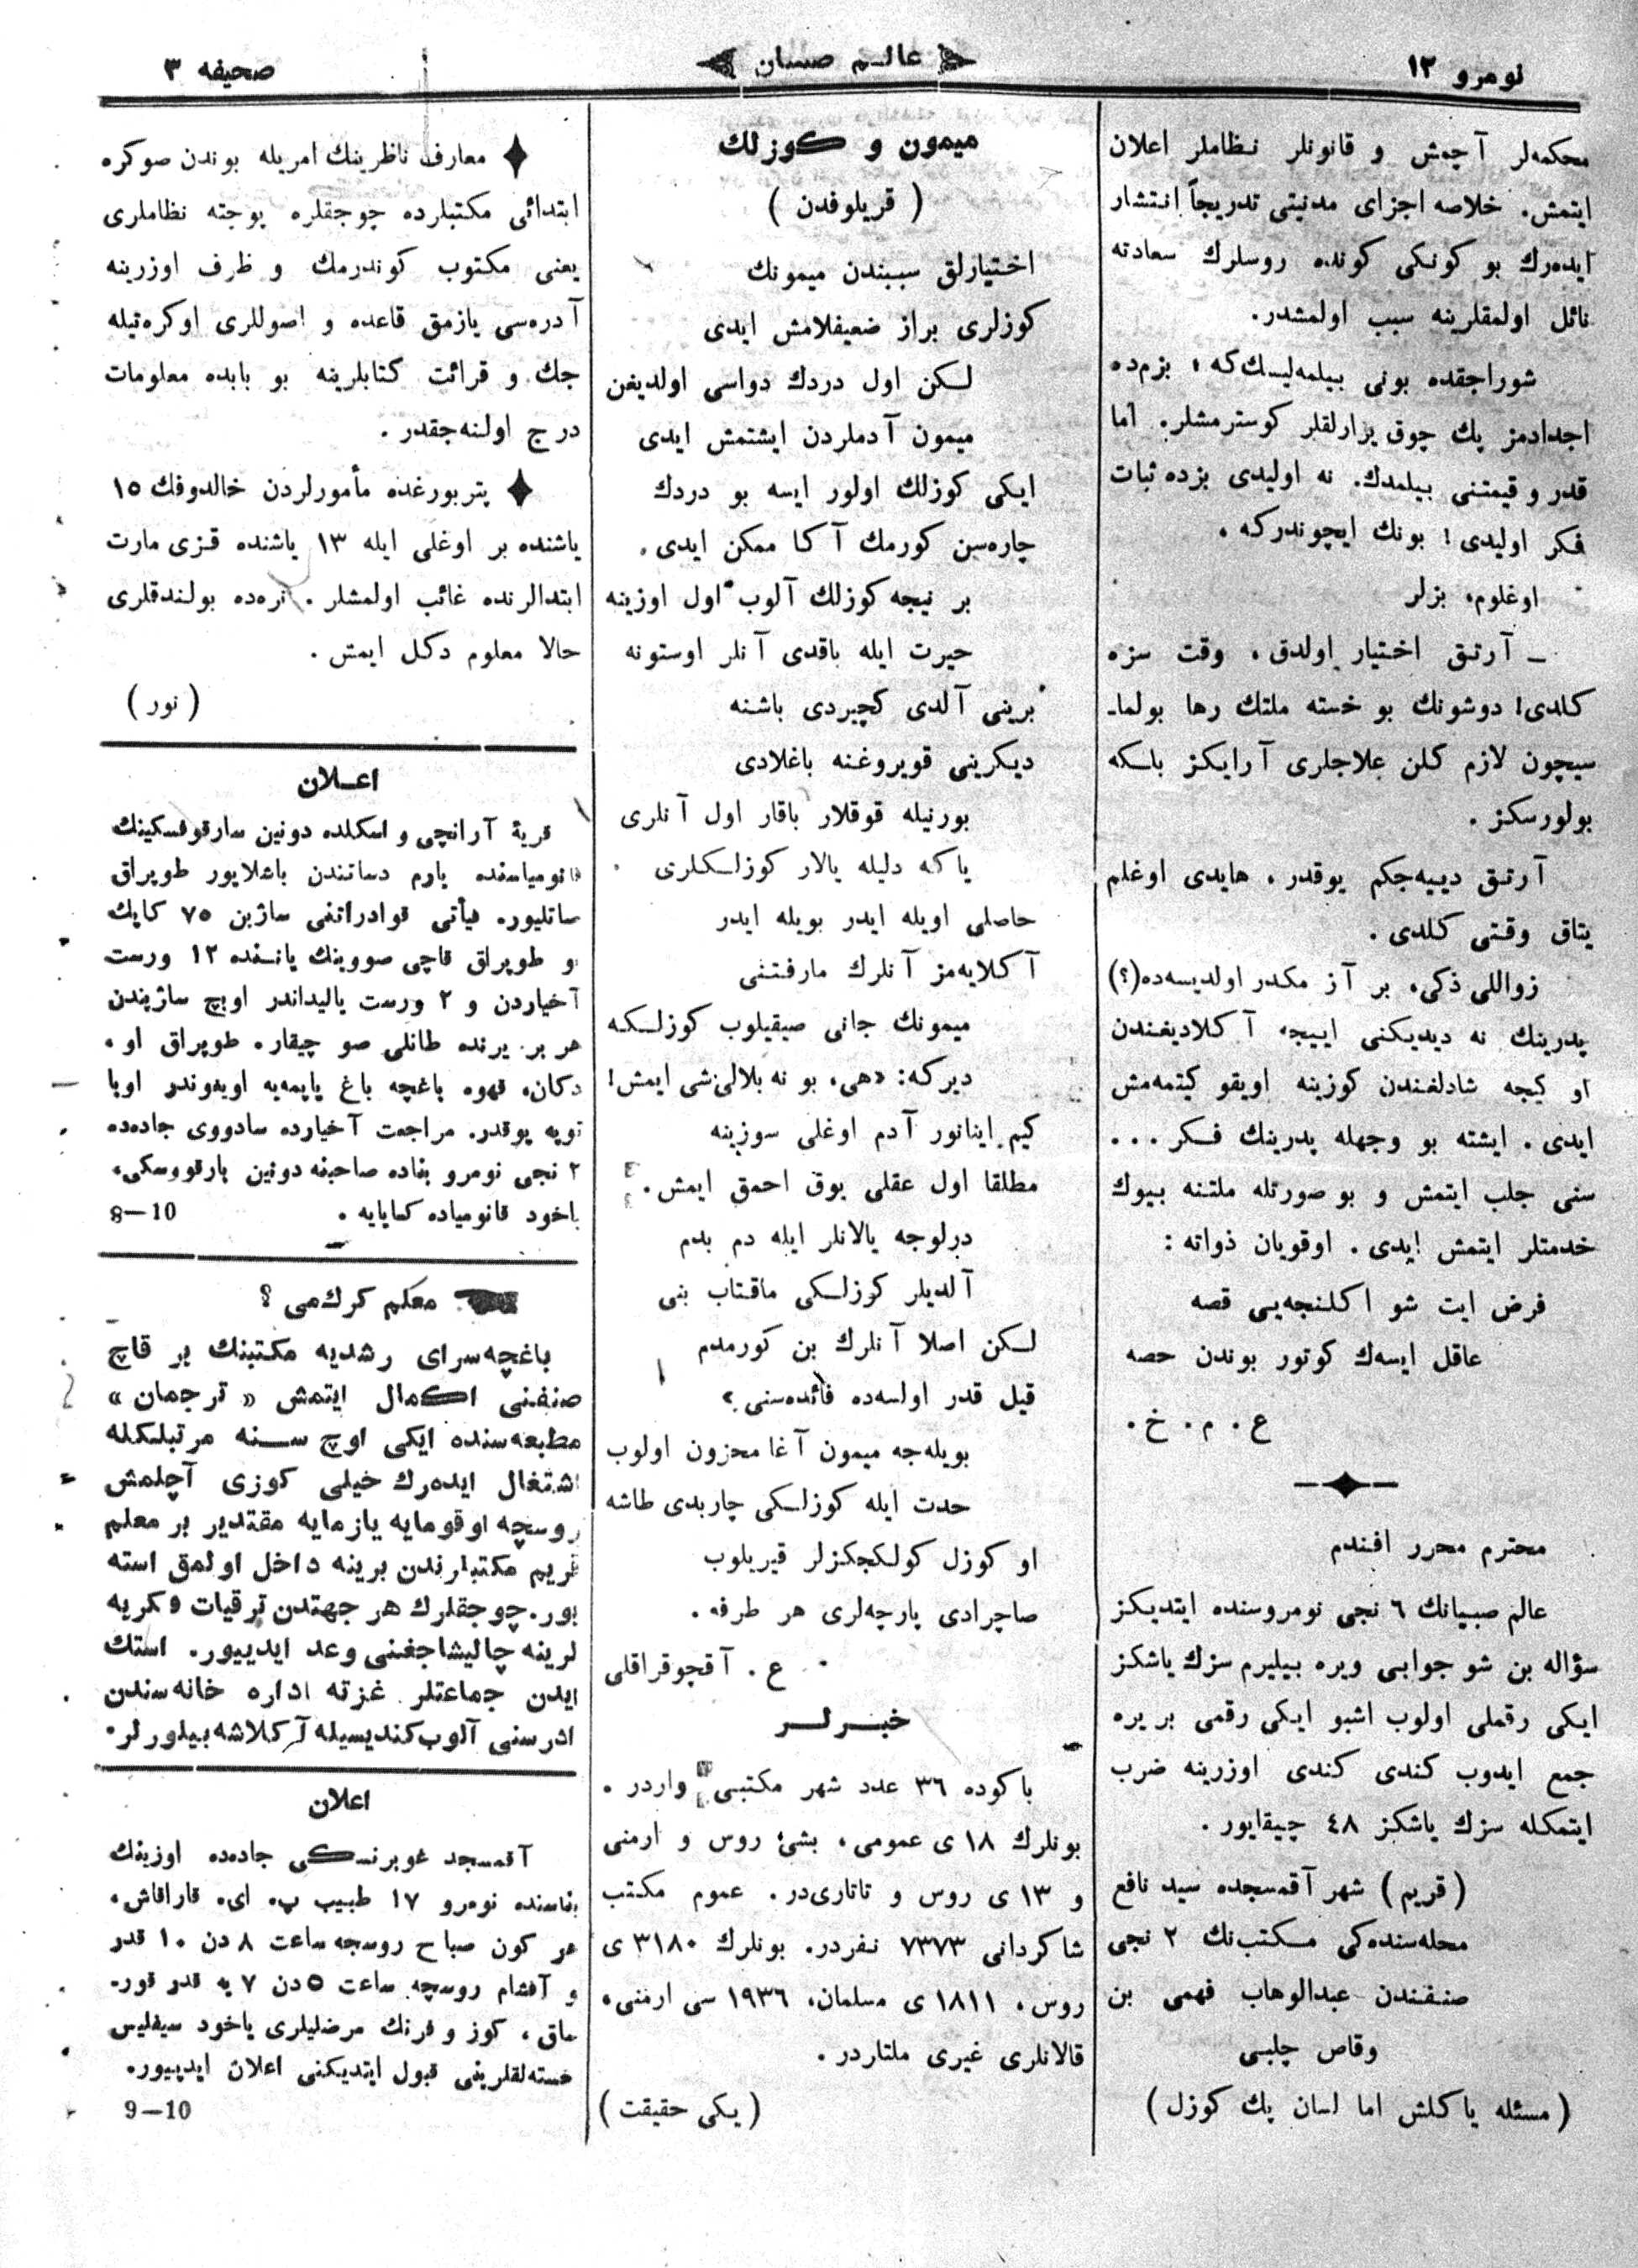 نومرو ١٢
عالم صبيان
صحيفه ٣
محكمه‌لر آچمش و قانونلر نظاملر اعلان
ايتمش. خلاصه اجزاى مدنيتى تدريجاً انتشار
ايده‌رك بو كونكى كونده روسلرك سعادته
نائل اولمقلرينه سبب اولمشدر.
شوراجقده بونى بيلمه‌ليسك‌كه، بزم‌ده
اجدادمز پك چوق يرارلقلر كوسترمشلر. اما
قدر و قيمتنى بيلمدك. نه اوليدى بزده ثبات
فكر اوليدى! بونك ايچوندركه.
اوغلوم، بزلر
ـ آرتق اختيار اولدق. وقت سزه
كلدى! دوشونك بو خسته ملتك رها بولما-
سيچون لازم كلن علاجلرى آرايكز باسكه
بولورسكز.
آرتق دييه‌جكم يوقدر. هايدى اوغلم
يتاق وقتى كلدى.
زواللى ذكى، بر آز مكدر اولديسه‌ده(؟)
پدرينك نه ديديكنى اييجه آكلاديغندن
او كيجه شادلغندن كوزينه اويقو كيتمه‌مش
ايدى. ايشته بو وجهله پدرينك فكر...
سنى جلب ايتمش و بو صورتله ملتنه بيوك
خدمتلر ايتمش ايدى. اوقويان ذواته:
فرض ايت شو اكلنجه‌يى قصه
عاقل ايسه‌ك كوتور بوندن حصه
ع. م. خ.
محترم محرر افندم
عالم صبيانك ٦ نجى نومروسنده ايتديكز
سؤاله بن شو جوابى ويره بيليرم سزك ياشكز
ايكى رقملى اولوب اشبو ايكى رقمى بر يره
جمع ايدوب كندى كندى اوزرينه ضرب
ايتمكله سزك ياشكز ٤٨ چيقايور.
(قريم) شهر آقمسجده سيد نافع
محله‌سنده‌كى مكتب‌نك ٢ نجى
صنفندن عبدالوهاب فهمى بن
وقاص چلبى
(مسئله ياكلش اما لسان پك كوزل)
ميمون و كوزلك
(قريلوفدن)
اختيارلق سببندن ميمونك
كوزلرى براز ضعيفلامش ايدى
لكن اول دردك دواسى اولديغن
ميمون آدملردن ايشتمش ايدى
ايكى كوزلك اولور ايسه بو دردك
چاره‌سن كورمك آكا ممكن ايدى.
بر نيجه كوزلك آلوب اول اوزينه
حيرت ايله باقدى آنلر اوستونه
برينى آلدى كچيردى باشنه
ديكرينى قويروغنه باغلادى
بورنيله قوقلار باقار اول آنلرى
ياكه دليله يالار كوزلكلرى
حاصلى اويله ايدر بويله ايدر
آكلايه‌مز آنلرك مارفتنى
ميمونك جانى صيقيلوب كوزلكه
ديركه: «هى، بو نه بلالى‌شى ايمش!
كيم اينانور آدم اوغلى سوزينه
مطلقا اول عقلى يوق احمق ايمش.
درلوجه يالانلر ايله دم بدم
آلديلر كوزلكى ماقتاب بنى
لكن اصلا آنلرك بن كورمدم
قيل قدر اولسه‌ده فائده‌سنى.»
بويله‌جه ميمون آغا محزون اولوب
حدت ايله كوزلكى چاربدى طاشه
او كوزل كولكجكزلر قيريلوب
صاچرادى پارچه‌لرى هر طرفه.
ع. آقچوقراقلى
خبرلر
باكوده ٣٦ عدد شهر مكتبى واردر.
بونلرك ١٨ ى عمومى، بشئ روس و ارمنى
و ١٣ ى روس و تاتارى‌در. عموم مكتب
شاكردانى ٧٣٧٣ نفردر. بونلرك ٣١٨٠ ى
روس، ١٨١١ ى مسلمان، ١٩٣٦ سى ارمنى،
قالانلرى غيرى ملتاردر.
(يكى حقيقت)
معارف ناظرينك امريله بوندن صوكره
ابتدائى مكتبلرده چوجقلره پوچته نظاملرى
يعنى مكتوب كوندرمك و ظرف اوزرينه
آدره‌سى يازمق قاعده و اصوللرى اوكره‌تيله
جك و قرائت كتابلرينه بو بابده معلومات
درج اولنه‌جقدر.
پتربورغده مأمورلردن خالدوفك ١٥
ياشنده بر اوغلى ايله ١٣ ياشنده قزى مارت
ابتدالرنده غائب اولمشلر. نره‌ده بولندقلرى
حالا معلوم دكل ايمش.
(نور)
اعلان
قريۀ آرانچى و اسكلده دونين سارقوفسكينك
قانومياسنده يارم دساتندن باشلايور طوپراق
ساتليور. فيأتى قوادراتنى ساژين ٧٥ كاپك
و طوپراق قاچى صووينك يانسنده ١٢ ورست
آخياردن و ٢ ورست ياليداندر اوبچ ساژيندن
هر بر يرنده طاتلى صو چيقار. طوپراق او،
دكان، قهوه باغچه باغ ياپمه‌يه اويغوندر اوبا
توپه يوقدر. مراجعت آخيارده سادووى جاده‌ده
٢ نجى نومرو بناده صاحبنه دونين بارقووسكى،
ياخود قانومياده كماياپه.
8—10
معلم كرك‌مى؟
باغچه‌سراى رشديه مكتبنك بر قاچ
صنفنى اكمال ايتمش «ترجمان»
مطبعه‌سنده ايكى اوچ سنه مرتبلكله
اشتغال ايده‌رك خيلى كوزى آچلمش
روسچه اوقومايه يازمايه مقتدير بر معلم
قريم مكتبلرندن برينه داخل اولمق استه
يور. چوجقلرك هر جهتدن ترقيات فكريه
لرينه چاليشاجغنى وعد ايدييور. استك
ايدن جماعتلر غزته اداره خانه‌سندن
ادرسنى آلوب كنديسيله آكلاشه بيلورلر.
اعلان
آقمسجد غوبرنسكى جاده‌ده اوزينك
بناسنده نومرو ١٧ طبيب پ. اى. قاراقاش،
هر كون صباح روسجه ساعت ٨ دن ١٠ قدر
و آقشام روسچه ساعت ٥ دن ٧ يه قدر قور-
ساق، كوز و فرنك مرضليلرى ياخود سيفليس
خسته‌لقلرينى قبول ايتديكنى اعلان ايدييور.
9—10